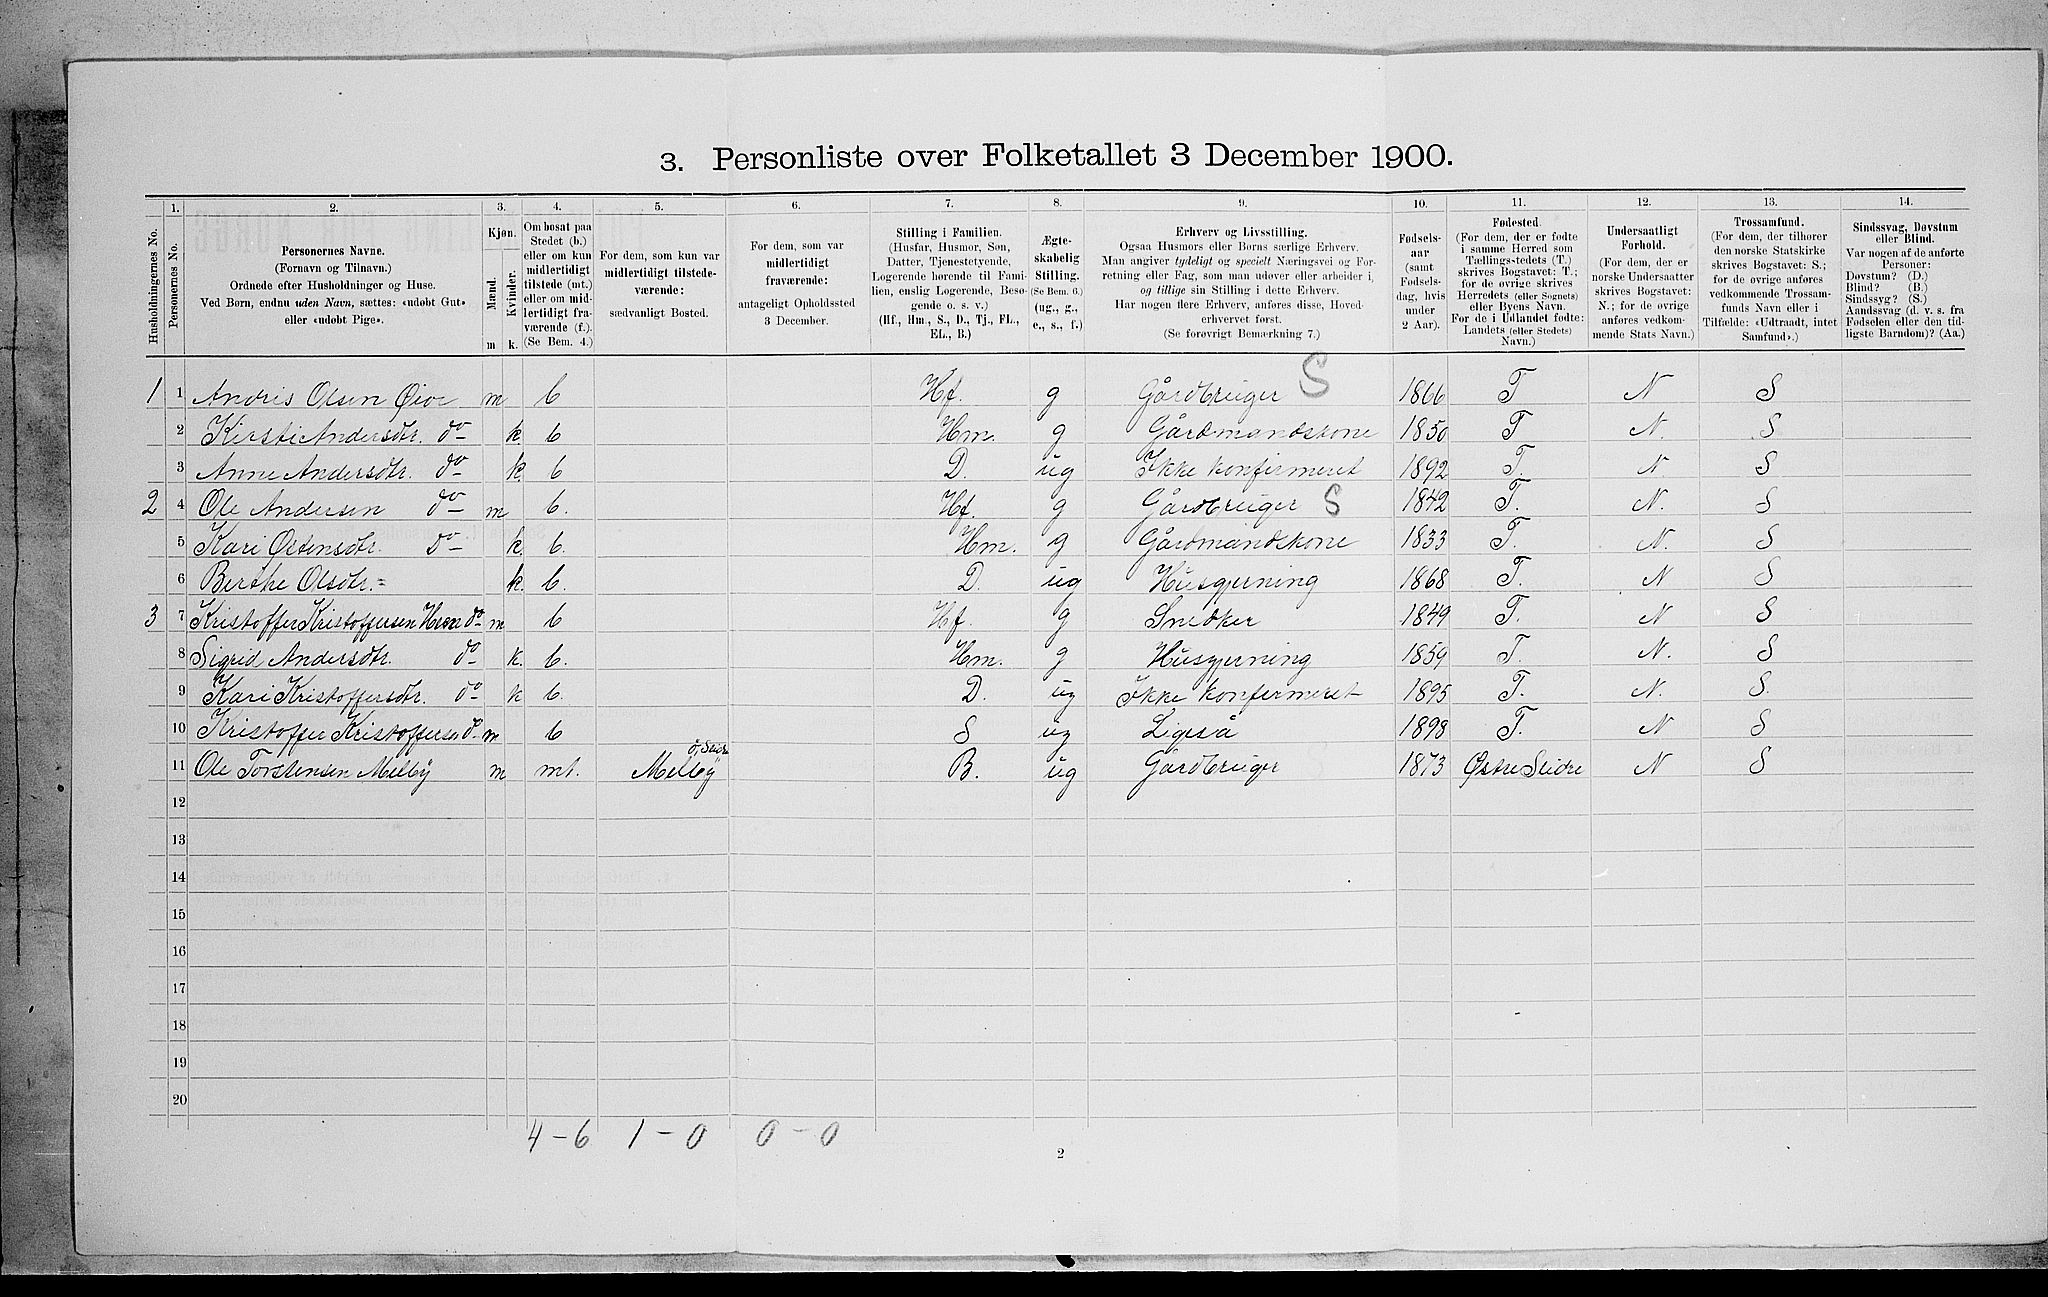 3. Personliste over Folketallet 3 December 1900.
1. 2. 3. 4. 5. 6. 7. 8. 9. 10. 11. 12. 13. 14.
Husholdningernes No.
Personernes No.
Personernes Navne.
(Fornavn og Tilnavn.)
Ordnede efter Husholdninger og Huse.
Ved Børn, endnu uden Navn, sættes: «udøbt Gut»
eller «udøbt Pige».
Kjøn.
Mænd.
Kvinder.
m k.
Om bosat paa
Stedet (b.)
eller om kun
midlertidigt
tilstede (mt.)
eller om mid-
lertidigt fra-
værende (f.).
(Se Bem. 4.)
For dem, som kun var
midlertidigt tilstede-
værende:
sædvanligt Bosted.
For dem, som var
midlertidigt
fraværende:
antageligt Opholdssted
3 December.
Stilling i Familien.
(Husfar, Husmor, Søn,
Datter, Tjenestetyende,
Logerende hørende til Fami-
lien, enslig Logerende, Besø-
gende o. s. v.)
(Hf., Hm., S., D., Tj., FL.,
EL., B.)
Ægte-
skabelig
Stilling.
(Se Bem. 6.)
(ug., g.,
e., s., f.)
Erhverv og Livsstilling.
Ogsaa Husmors eller Børns særlige Erhverv.
Man angiver tydeligt og specielt Næringsvei og For-
retning eller Fag, som man udøver eller arbeider i,
og tillige sin Stilling i dette Erhverv.
Har nogen flere Erhverv, anføres disse, Hoved-
erhvervet først.
(Se forøvrigt Bemærkning 7.)
Fødsels-
aar
(samt
Fødsels-
dag, hvis
under
2 Aar).
Fødested.
(For dem, der er fødte
i samme Herred som
Tællingsstedets (T.)
skrives Bogstavet: T.;
for de øvrige skrives
Herredets (eller Sognets)
eller Byens Navn.
For de i Udlandet fødte:
Landets (eller Stedets)
Navn.)
Undersaatligt
Forhold.
(For dem, der er
norske Undersaatter
skrives Bogstavet:
N.; for de øvrige
anføres vedkom-
mende Stats Navn.)
Trossamfund.
(For dem, der tilhører
den norske Statskirke
skrives Bogstavet: S.;
for de øvrige anføres
vedkommende Trossam-
funds Navn eller i
Tilfælde: «Udtraadt, intet
Samfund».)
Sindssvag, Døvstum
eller Blind.
Var nogen af de anførte
Personer:
Døvstum? (D.)
Blind? (B.)
Sindssyg? (S.)
Aandssvag (d. v. s. fra
Fødselen eller den tid-
ligste Barndom)? (Aa.)
1 1 Andris Olsen Øioe m b Hf. g Gårdbruger S 1866 T N S
2 Kirsti Andersdtr. do k b Hm. g Gårdmandskone 1850 T N. S
3 Anne Andersdtr. do k. b D. ug Ikke konfirmeret 1892 T. N S
2 4 Ole Andersen do m b. Hf. g Gårdbruger S 1842 T. N. S
5 Kari Østensdtr. do k. b. Hm. g Gårdmandskone 1833 T. N. S
6 Berthe Olsdtr. = k. b. D. ug Husgjerning 1868 T. N S
3 7 Kristoffer Kristoffersen do m b Hf. g Snedker 1849 T. N S
8 Sigrid Andersdtr. do k. b. Hm. g Husgjerning 1859 T. N. S
9 Kari Kristoffersdtr. do k b. D. ug Ikke konfirmeret 1895 T. N. S.
10 Kristoffer Kristoffersen do m b S ug Ligeså 1898 T. N S
11 Ole Torstensen Melby m mt. Melby Ø, Slidre B. ug Gårdbruger 1873 Østre Slidre N S
12
13
14
15
16
17
18
19
20
4 - 6 1 - 0 0 - 0
2